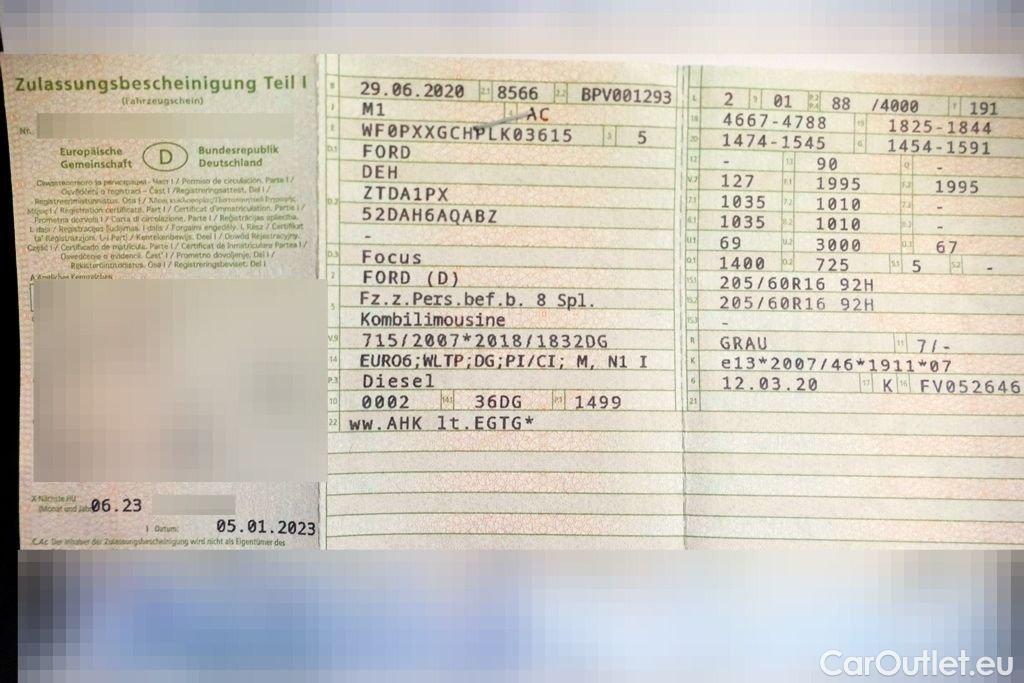 Zulassungsbescheinigung Teil I
(Fahrzeugschein)
Nr.
Europäische Gemeinschaft
D
Bundesrepublik Deutschland
X Nächste HU
(Monat und Jahr) 06.23
I Datum: 05.01.2023
C.4c Der Inhaber der Zulassungsbescheinigung wird nicht als Eigentümer des
B 29.06.2020 2.1 8566 2.2 BPV001293
J M1 4 AC
E WF0PXXGCHPLK03615 3 5
D.1 FORD
DEH
D.2 ZTDA1PX
52DAH6AQABZ
-
D.3 Focus
2 FORD (D)
5 Fz.z.Pers.bef.b. 8 Spl.
Kombilimousine
V.9 715/2007*2018/1832DG
14 EURO6;WLTP;DG;PI/CI; M, N1 I
P.3 Diesel
10 0002 14.1 36DG P.1 1499
22 ww.AHK lt.EGTG*
L 2 9 01 P.2 P.4 88 /4000 T 191
18 4667-4788 19 1825-1844
20 1474-1545 G 1454-1591
12 - 13 90 Q -
V.7 127 F.1 1995 F.2 1995
7.1 1035 7.2 1010 7.3 -
8.1 1035 8.2 1010 8.3 -
U.1 69 U.2 3000 U.3 67
O.1 1400 O.2 725 S.1 5 S.2 -
15.1 205/60R16 92H
15.2 205/60R16 92H
15.3 -
R GRAU 11 7/-
K e13*2007/46*1911*07
6 12.03.20 17 K 16 FV052646
21
CarOutlet.eu